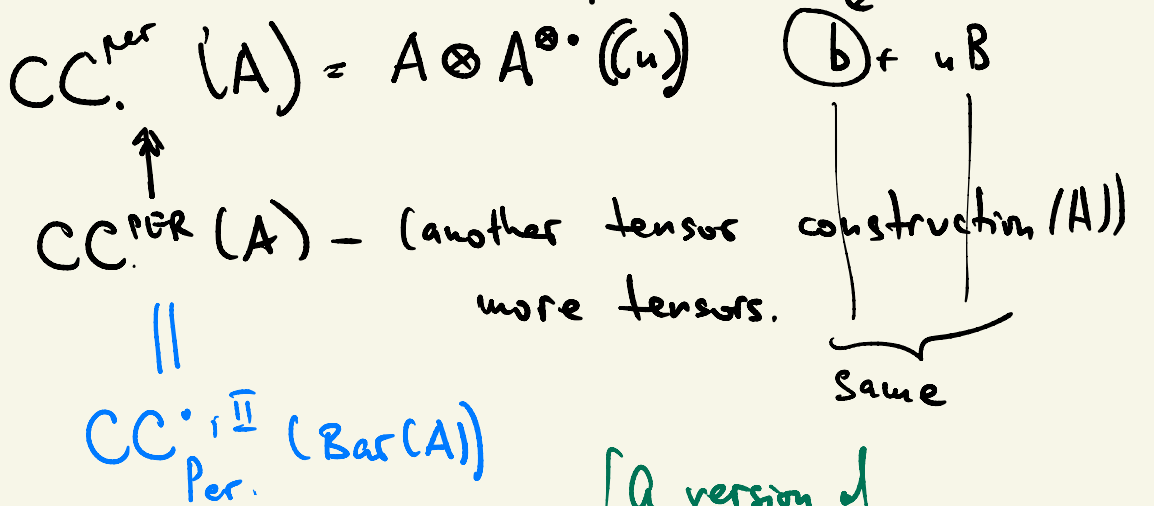 CC.^per (A) = A ⊗ A^⊗• ((u)) b + uB
CC.^PER (A) – (another tensor construction (A))
more tensors.
same
CC^•,II_Per. (Bar(A))
[a version of